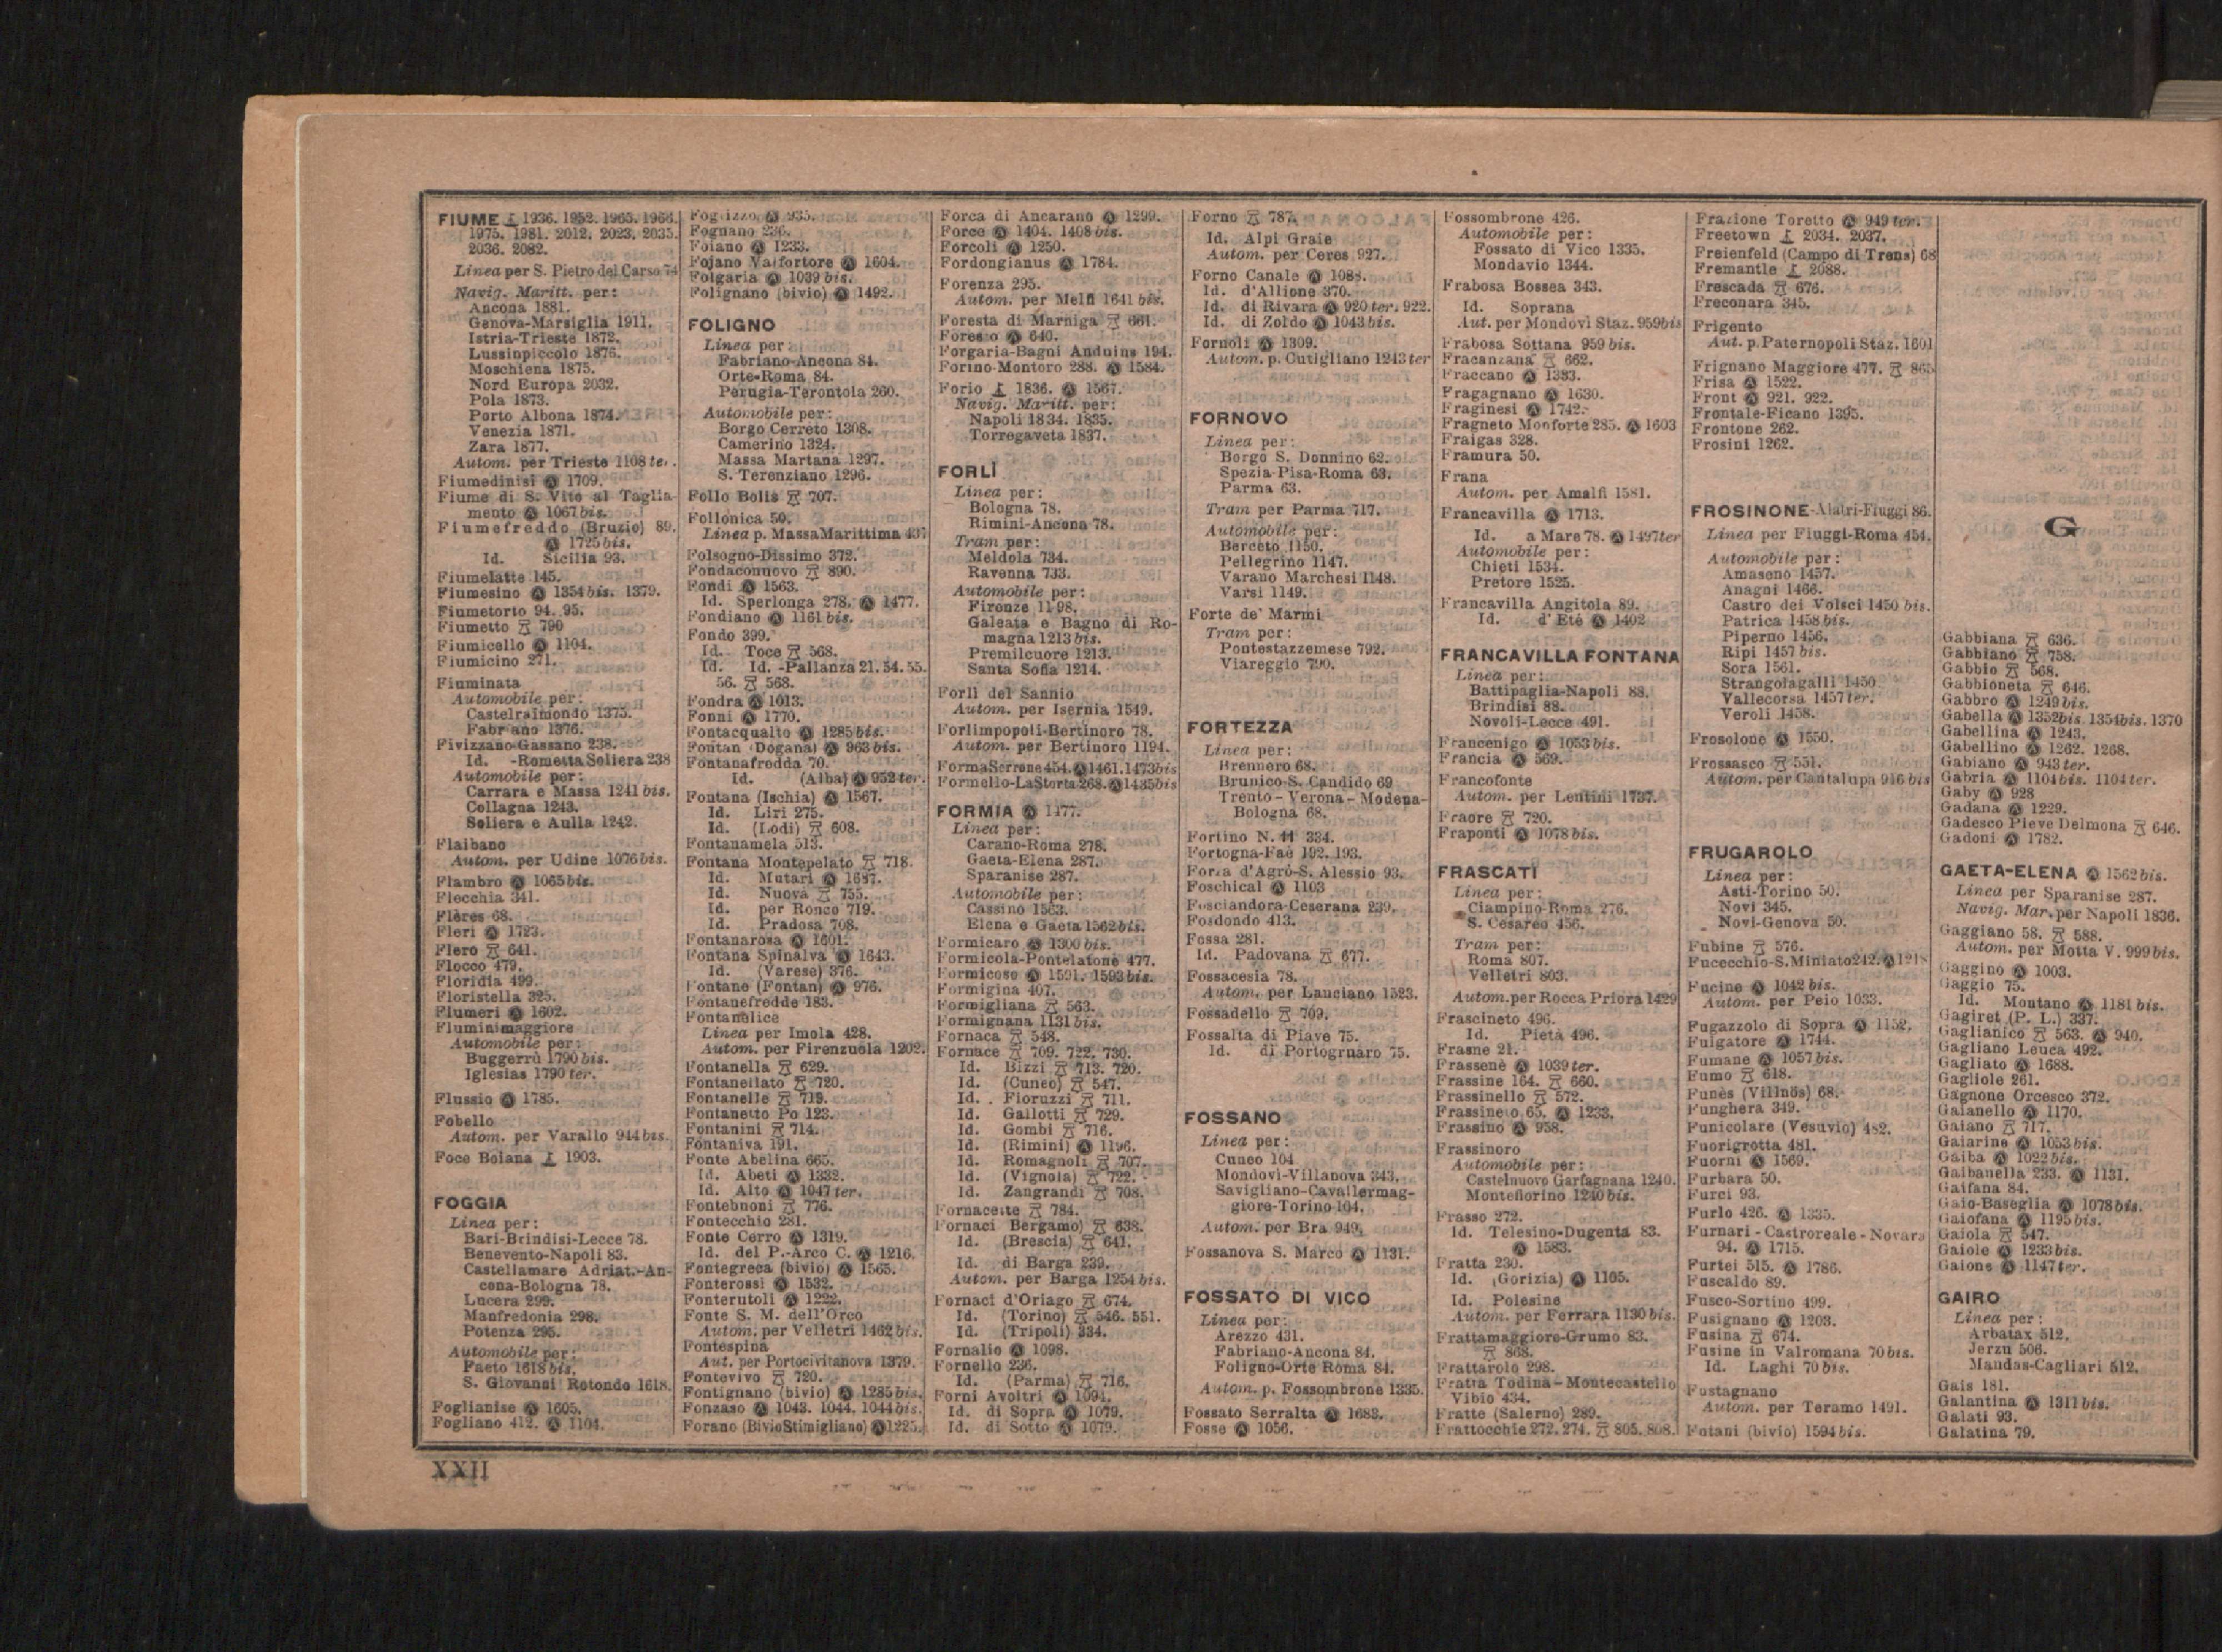 FIUME 1936. 1952. 1965. 1966.
1975. 1981. 2012. 2023. 2035.
2036. 2082.
Linea per S. Pietro del Carso 74
Navig. Maritt. per:
Ancona 1881.
Genova-Marsiglia 1911.
Istria-Trieste 1872.
Lussinpiccolo 1876.
Moschiena 1875.
Nord Europa 2032.
Pola 1873.
Porto Albona 1874.
Venezia 1871.
Zara 1877.
Autom. per Trieste 1108 ter.
Fiumedinisi Ⓐ 1709.
Fiume di S. Vito al Taglia-
mento Ⓐ 1067 bis.
Fiumefreddo (Bruzio) 89.
Ⓐ 1725 bis.
Id. Sicilia 93.
Fiumelatte 145.
Fiumesino Ⓐ 1354 bis. 1379.
Fiumetorto 94. 95.
Fiumetto 790
Fiumicello Ⓐ 1104.
Fiumicino 271.
Fiuminata
Automobile per:
Castelraimondo 1375.
Fabriano 1376.
Fivizzano-Gassano 238.
Id. -Rometta Soliera 238
Automobile per:
Carrara e Massa 1241 bis.
Collagna 1243.
Soliera e Aulla 1242.
Flaibano
Autom. per Udine 1076 bis.
Flambro Ⓐ 1065 bis.
Flecchia 341.
Flères 68.
Fleri Ⓐ 1723.
Flero 641.
Flocco 479.
Floridia 499.
Floristella 325.
Flumeri Ⓐ 1602.
Fluminimaggiore
Automobile per:
Buggerrù 1790 bis.
Iglesias 1790 ter.
Flussio Ⓐ 1785.
Fobello
Autom. per Varallo 944 bis.
Foce Boiana 1903.
FOGGIA
Linea per:
Bari-Brindisi-Lecce 78.
Benevento-Napoli 83.
Castellamare Adriat.-An-
cona-Bologna 78.
Lucera 299.
Manfredonia 298.
Potenza 295.
Automobile per:
Faeto 1618 bis.
S. Giovanni Rotondo 1618.
Foglianise Ⓐ 1605.
Fogliano 412. Ⓐ 1104.
Foglizzo Ⓐ 935.
Fognano 236.
Foiano Ⓐ 1233.
Fojano Valfortore Ⓐ 1604.
Folgaria Ⓐ 1039 bis.
Folignano (bivio) Ⓐ 1492.
FOLIGNO
Linea per:
Fabriano-Ancona 84.
Orte-Roma 84.
Perugia-Terontola 260.
Automobile per:
Borgo Cerreto 1308.
Camerino 1324.
Massa Martana 1297.
S. Terenziano 1296.
Follo Bolis 707.
Follonica 50.
Linea p. Massa Marittima 437
Folsogno-Dissimo 372.
Fondaconuovo 890.
Fondi Ⓐ 1563.
Id. Sperlonga 278. Ⓐ 1477.
Fondiano Ⓐ 1161 bis.
Fondo 399.
Id. Toce 568.
Id. Id. -Pallanza 21. 54. 55.
56. 568.
Fondra Ⓐ 1013.
Fonni Ⓐ 1770.
Fontacqualto Ⓐ 1285 bis.
Fontan (Dogana) Ⓐ 963 bis.
Fontanafredda 70.
Id. (Alba) Ⓐ 952 ter.
Fontana (Ischia) Ⓐ 1567.
Id. Liri 275.
Id. (Lodi) 608.
Fontanamela 513.
Fontana Montepelato 718.
Id. Mutari Ⓐ 1687.
Id. Nuova 755.
Id. per Ronco 719.
Id. Pradosa 708.
Fontanarosa Ⓐ 1601.
Fontana Spinalva Ⓐ 1643.
Id. (Varese) 376.
Fontane (Fontan) Ⓐ 976.
Fontanefredde 183.
Fontanelice
Linea per Imola 428.
Autom. per Firenzuola 1202.
Fontanella 629.
Fontanellato 720.
Fontanelle 719.
Fontanetto Po 123.
Fontanini 714.
Fontaniva 191.
Fonte Abelina 665.
Id. Abeti Ⓐ 1332.
Id. Alto Ⓐ 1047 ter.
Fontebuoni 776.
Fontecchio 281.
Fonte Cerro Ⓐ 1319.
Id. del P.-Arco C. Ⓐ 1216.
Fontegreca (bivio) Ⓐ 1565.
Fonterossi Ⓐ 1532.
Fonterutoli Ⓐ 1222.
Fonte S. M. dell'Orco
Autom. per Velletri 1462 bis.
Fontespina
Aut. per Portocivitanova 1379.
Fontevivo 720.
Fontignano (bivio) Ⓐ 1285 bis.
Fonzaso Ⓐ 1043. 1044. 1044 bis.
Forano (Bivio Stimigliano) Ⓐ 1225.
Forca di Ancarano Ⓐ 1299.
Force Ⓐ 1404. 1408 bis.
Forcoli Ⓐ 1250.
Fordongianus Ⓐ 1784.
Forenza 295.
Autom. per Melfi 1641 bis.
Foresta di Marniga 661.
Foresto Ⓐ 640.
Forgaria-Bagni Anduins 194.
Forino-Montoro 288. Ⓐ 1584.
Forio 1836. Ⓐ 1567.
Navig. Maritt. per:
Napoli 1834. 1835.
Torregaveta 1837.
FORLÌ
Linea per:
Bologna 78.
Rimini-Ancona 78.
Tram per:
Meldola 734.
Ravenna 733.
Automobile per:
Firenze 1198.
Galeata e Bagno di Ro-
magna 1213 bis.
Premilcuore 1213.
Santa Sofia 1214.
Forlì del Sannio
Autom. per Isernia 1549.
Forlimpopoli-Bertinoro 78.
Autom. per Bertinoro 1194.
Forma Serrone 454. Ⓐ 1461. 1473 bis
Formello-La Storta 268. Ⓐ 1435 bis
FORMIA Ⓐ 1477.
Linea per:
Carano-Roma 278.
Gaeta-Elena 287.
Sparanise 287.
Automobile per:
Cassino 1563.
Elena e Gaeta 1562 bis.
Formicaro Ⓐ 1300 bis.
Formicola-Pontelatone 477.
Formicoso Ⓐ 1591. 1593 bis.
Formigina 407.
Formigliana 563.
Formignana 1131 bis.
Fornaca 548.
Fornace 709. 722. 730.
Id. Bizzi 713. 720.
Id. (Cuneo) 547.
Id. Fioruzzi 711.
Id. Gallotti 729.
Id. Gombi 716.
Id. (Rimini) Ⓐ 1196.
Id. Romagnoli 707.
Id. (Vignola) 722.
Id. Zangrandi 708.
Fornacette 784.
Fornaci Bergamo) 638.
Id. (Brescia) 641.
Id. di Barga 239.
Autom. per Barga 1254 bis.
Fornaci d'Oriago 674.
Id. (Torino) 546. 551.
Id. (Tripoli) 334.
Fornalio Ⓐ 1098.
Fornello 236.
Id. (Parma) 716.
Forni Avoltri Ⓐ 1094.
Id. di Sopra Ⓐ 1079.
Id. di Sotto Ⓐ 1079.
Forno 787.
Id. Alpi Graie
Autom. per Ceres 927.
Forno Canale Ⓐ 1088.
Id. d'Allione 370.
Id. di Rivara Ⓐ 920 ter. 922.
Id. di Zoldo Ⓐ 1043 bis.
Fornoli Ⓐ 1309.
Autom. p. Cutigliano 1243 ter
FORNOVO
Linea per:
Borgo S. Donnino 62.
Spezia-Pisa-Roma 63.
Parma 63.
Tram per Parma 717.
Automobile per:
Berceto 1150.
Pellegrino 1147.
Varano Marchesi 1148.
Varsi 1149.
Forte de' Marmi
Tram per:
Pontestazzemese 792.
Viareggio 790.
FORTEZZA
Linea per:
Brennero 68.
Brunico-S. Candido 69
Trento-Verona-Modena-
Bologna 68.
Fortino N. 11 334.
Fortogna-Faè 192. 193.
Forza d'Agrò-S. Alessio 93.
Foschical Ⓐ 1103
Fosciandora-Ceserana 239.
Fosdondo 413.
Fossa 281.
Id. Padovana 677.
Fossacesia 78.
Autom. per Lanciano 1523.
Fossadello 709.
Fossalta di Piave 75.
Id. di Portogruaro 75.
FOSSANO
Linea per:
Cuneo 104
Mondovì-Villanova 343.
Savigliano-Cavallermag-
giore-Torino 104.
Autom. per Bra 949.
Fossanova S. Marco Ⓐ 1131.
FOSSATO DI VICO
Linea per:
Arezzo 431.
Fabriano-Ancona 84.
Foligno-Orte Roma 84.
Autom. p. Fossombrone 1335.
Fossato Serralta Ⓐ 1683.
Fosse Ⓐ 1056.
Fossombrone 426.
Automobile per:
Fossato di Vico 1335.
Mondavio 1344.
Frabosa Bossea 343.
Id. Soprana
Aut. per Mondovì Staz. 959 bis
Frabosa Sottana 959 bis.
Fracanzana 662.
Fraccano Ⓐ 1333.
Fragagnano Ⓐ 1630.
Fraginesi Ⓐ 1742.
Fragneto Monforte 285. Ⓐ 1603
Fraigas 328.
Framura 50.
Frana
Autom. per Amalfi 1581.
Francavilla Ⓐ 1713.
Id. a Mare 78. Ⓐ 1497 ter
Automobile per:
Chieti 1534.
Pretore 1525.
Francavilla Angitola 89.
Id. d'Ete Ⓐ 1402
FRANCAVILLA FONTANA
Linea per:
Battipaglia-Napoli 88.
Brindisi 88.
Novoli-Lecce 491.
Francenigo Ⓐ 1053 bis.
Francia Ⓐ 569.
Francofonte
Autom. per Lentini 1737.
Fraore 720.
Fraponti Ⓐ 1078 bis.
FRASCATI
Linea per:
Ciampino-Roma 276.
S. Cesareo 456.
Tram per:
Roma 807.
Velletri 803.
Autom. per Rocca Priora 1429
Frascineto 496.
Id. Pietà 496.
Frasne 21.
Frassenè Ⓐ 1039 ter.
Frassine 164. 660.
Frassinello 572.
Frassineto 65. Ⓐ 1233.
Frassino Ⓐ 958.
Frassinoro
Automobile per:
Castelnuovo Garfagnana 1240.
Montefiorino 1240 bis.
Frasso 272.
Id. Telesino-Dugenta 83.
Ⓐ 1583.
Fratta 230.
Id. (Gorizia) Ⓐ 1105.
Id. Polesine
Autom. per Ferrara 1130 bis.
Frattamaggiore-Grumo 83.
868.
Frattarolo 298.
Fratta Todina-Montecastello
Vibio 434.
Fratte (Salerno) 289.
Frattocchie 272. 274. 805. 808.
Frazione Toretto Ⓐ 949 ter.
Freetown 2034. 2037.
Freienfeld (Campo di Trens) 68
Fremantle 2088.
Frescada 676.
Freconara 345.
Frigento
Aut. p. Paternopoli Staz. 1601
Frignano Maggiore 477. 865
Frisa Ⓐ 1522.
Front Ⓐ 921. 922.
Frontale-Ficano 1395.
Frontone 262.
Frosini 1262.
FROSINONE-Alatri-Fiuggi 86.
Linea per Fiuggi-Roma 454.
Automobile per:
Amaseno 1457.
Anagni 1466.
Castro dei Volsci 1450 bis.
Patrica 1458 bis.
Piperno 1456.
Ripi 1457 bis.
Sora 1561.
Strangolagalli 1450.
Vallecorsa 1457 ter.
Veroli 1458.
Frosolone Ⓐ 1550.
Frossasco 551.
Autom. per Cantalupa 916 bis
FRUGAROLO
Linea per:
Asti-Torino 50.
Novi 345.
Novi-Genova 50.
Fubine 576.
Fucecchio-S. Miniato 242. Ⓐ
Fucine Ⓐ 1042 bis.
Autom. per Peio 1033.
Fugazzolo di Sopra Ⓐ 1152.
Fulgatore Ⓐ 1744.
Fumane Ⓐ 1057 bis.
Fumo 618.
Funès (Villnös) 68.
Funghera 349.
Funicolare (Vesuvio) 482.
Fuorigrotta 481.
Fuorni Ⓐ 1569.
Furbara 50.
Furci 93.
Furlo 426. Ⓐ 1335.
Furnari-Castroreale-Novara
94. Ⓐ 1715.
Furtei 515. Ⓐ 1786.
Fuscaldo 89.
Fusco-Sortino 499.
Fusignano Ⓐ 1203.
Fusina 674.
Fusine in Valromana 70 bis.
Id. Laghi 70 bis.
Fustagnano
Autom. per Teramo 1491.
Futani (bivio) 1594 bis.
G
Gabbiana 636.
Gabbiano 758.
Gabbio 568.
Gabbioneta 646.
Gabbro Ⓐ 1249 bis.
Gabella Ⓐ 1352 bis. 1354 bis. 1370
Gabellina Ⓐ 1243.
Gabellino Ⓐ 1262. 1268.
Gabiano Ⓐ 943 ter.
Gabria Ⓐ 1104 bis. 1104 ter.
Gaby Ⓐ 928
Gadana Ⓐ 1229.
Gadesco Pieve Delmona 646.
Gadoni Ⓐ 1782.
GAETA-ELENA Ⓐ 1562 bis.
Linea per Sparanise 287.
Navig. Mar. per Napoli 1836.
Gaggiano 58. 588.
Autom. per Motta V. 999 bis.
Gaggino Ⓐ 1003.
Gaggio 75.
Id. Montano Ⓐ 1181 bis.
Gagiret (P. L.) 337.
Gaglianico 563. Ⓐ 940.
Gagliano Leuca 492.
Gagliato Ⓐ 1688.
Gagliole 261.
Gagnone Orcesco 372.
Gaianello Ⓐ 1170.
Gaiano 717.
Gaiarine Ⓐ 1053 bis.
Gaiba Ⓐ 1022 bis.
Gaibanella 233. Ⓐ 1131.
Gaifana 84.
Gaio-Baseglia Ⓐ 1078 bis.
Gaiofana Ⓐ 1195 bis.
Gaiola 547.
Gaiole Ⓐ 1233 bis.
Gaione Ⓐ 1147 ter.
GAIRO
Linea per:
Arbatax 512.
Jerzu 506.
Mandas-Cagliari 512.
Gais 181.
Galantina Ⓐ 1311 bis.
Galati 93.
Galatina 79.
XXII